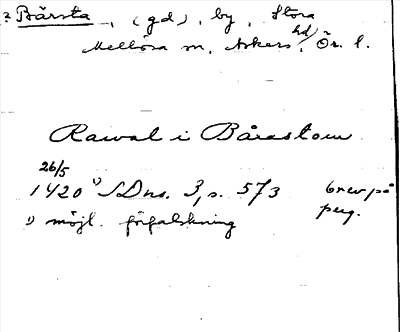 ? Bårsta, (gd), by, Stora
Mellösa sn, Askers hd, Ör. l.
Rawal i Bårastom
26/5
1420 1) SDns. 3, s. 573 brev på
perg.
1) möjl. förfalskning